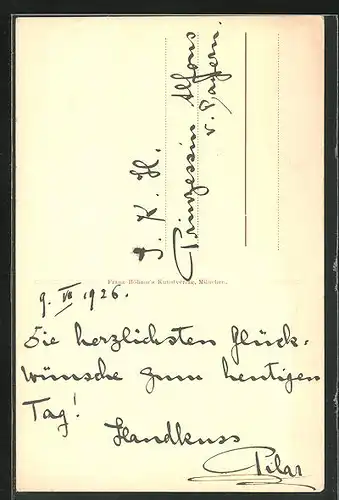 J. K. H.
Prinzessin Alfons
v. Bayern.
Franz Hölson's Kunstverlag, München.
9. VI 1926.
Die herzlichsten Glück-
wünsche zum heutigen
Tag!
Handkuss
Pilar